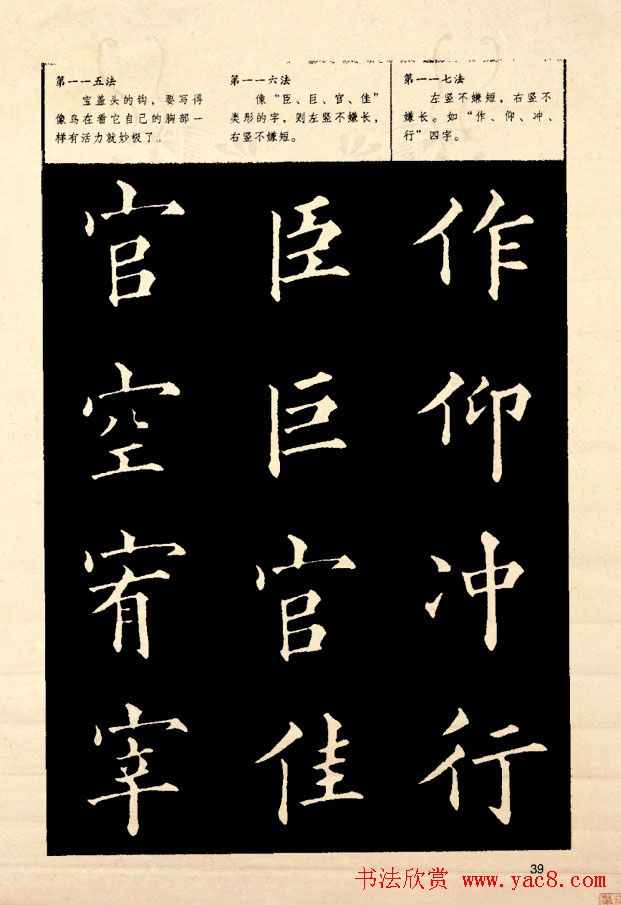 第一一五法
宝盖头的钩，要写得
像鸟在看它自己的胸部一
样有活力就妙极了。
第一一六法
像“臣、巨、官、佳”
类形的字，则左竖不嫌长，
右竖不嫌短。
第一一七法
左竖不嫌短，右竖不
嫌长。如“作、仰、冲、
行”四字。
官 臣 作
空 巨 仰
宥 官 冲
宰 佳 行
39
书法欣赏 www.yac8.com